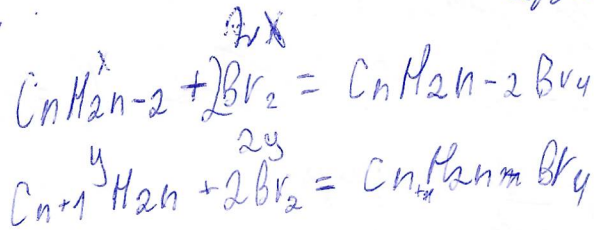 x 2x
CnH2n-2 + 2Br2 = CnH2n-2Br4
y 2y
Cn+1H2n + 2Br2 = Cn+1H2nBr4